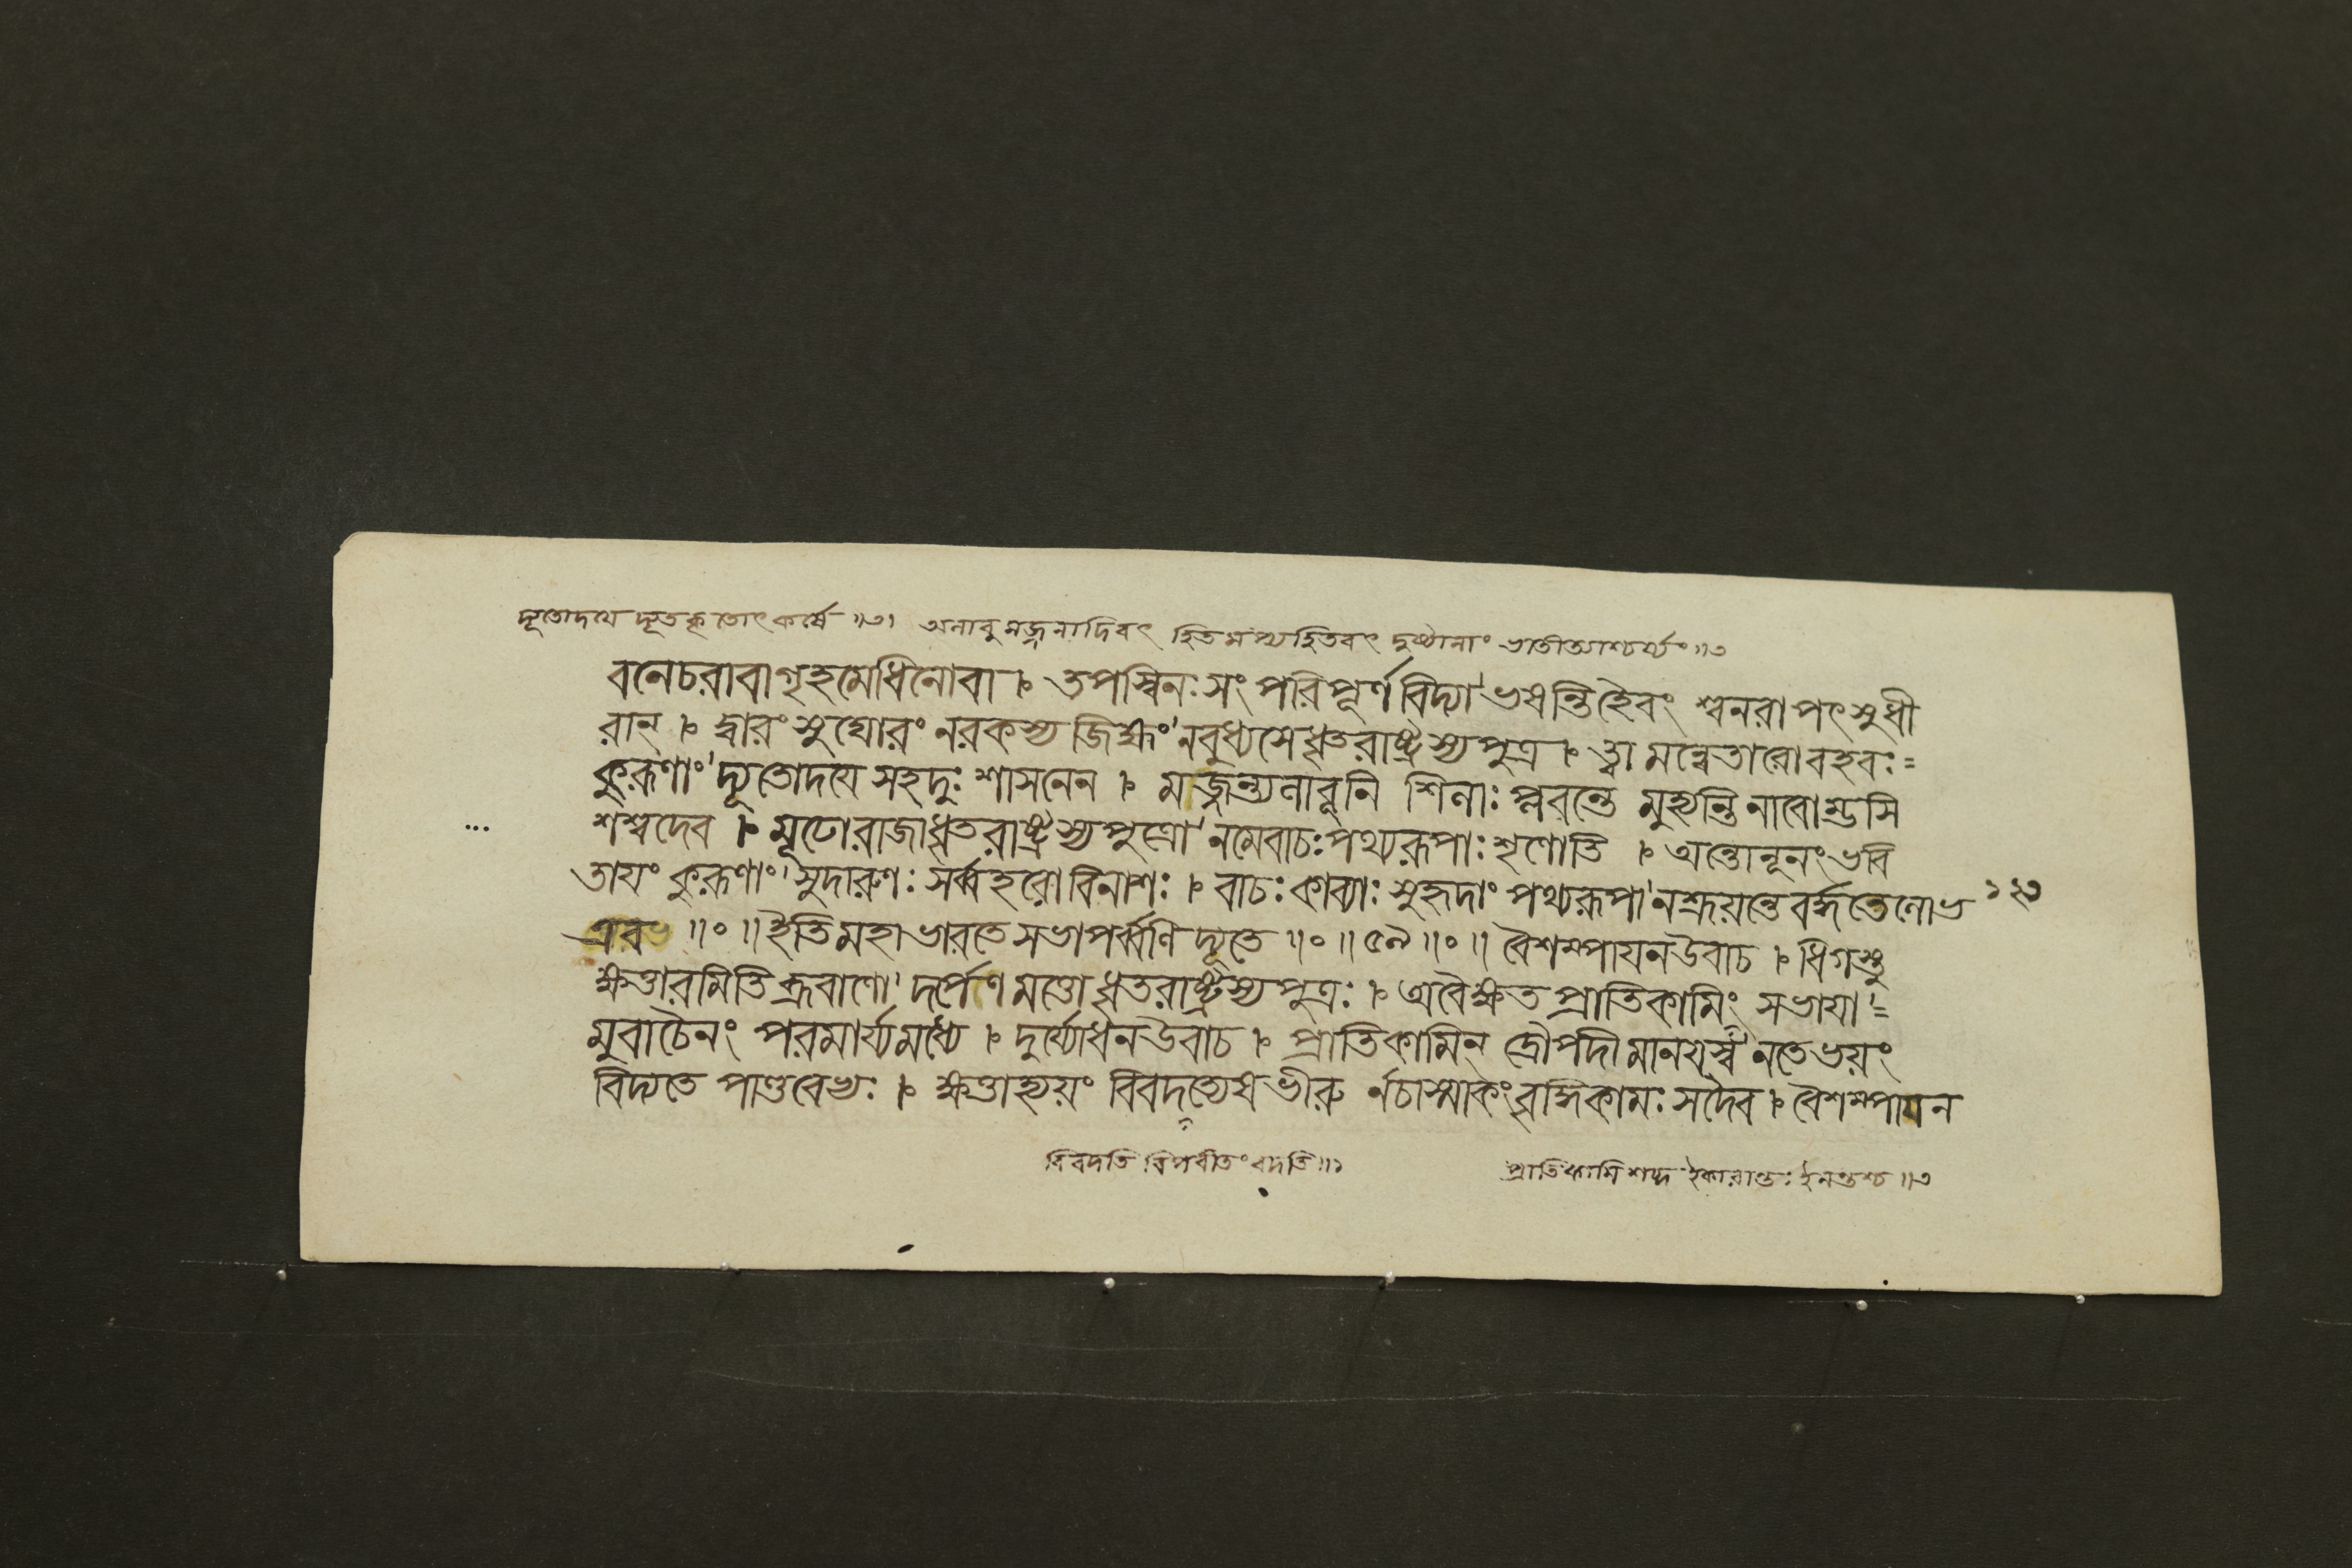 দ্যূতোদয়ে দ্যূতকৃতোৎকর্ষে ॥৩। অলাবুমজ্জনাদিবৎ হিতমপ্যহিতবৎ দুষ্টানাং ভাতীত্যাশ্চর্য্যং॥৩
বনেচরাবাগৃহমেধিনোবা । তপস্বিনঃ সংপরিপূর্ণবিদ্যা'ভষন্তিহৈবং শ্বনরাপৎসুধী
রান্ । দ্বারং সুঘোরং নরকস্য জিহ্মং'নবুধ্যসে ধৃতরাষ্ট্রস্যপুত্র । ত্বামন্বেতারোবহবঃ=
কুরূণাং'দ্যূতোদয়ে সহদুঃশাসনেন । মজ্জন্ত্যলাবূনি শিলাঃ প্লবন্তে মুহ্যন্তি নাবোম্ভসি
শশ্বদেব । মূঢোরাজাধৃতরাষ্ট্রস্যপুত্রো'নমেবাচঃপথ্যরূপাঃশৃণোতি । অন্তোনূনংভবি
তাযং কুরূণাং'সুদারুণঃ সর্ব্বহরোবিনাশঃ । বাচঃকাব্যাঃ সুহৃদাং পথ্যরূপা'নশ্রূয়ন্তেবর্দ্ধতেলোভ
এবং ॥०॥ইতিমহাভারতেসভাপর্ব্বণি দ্যূতে ॥०॥৫৯॥०॥ বৈশম্পাযনউবাচ । ধিগস্তু
ক্ষত্তারমিতি ব্রুবাণো'দর্পেণমত্তোধৃতরাষ্ট্রস্যপুত্রঃ । অবৈক্ষত প্রাতিকামিং সভাযা'=
মুবাচৈনং পরমার্য্যমধ্যে । দুর্য্যোধনউবাচ । প্রাতিকামিন্ দ্রৌপদীমানয়স্ব'নতেভয়ং
বিদ্যতে পাণ্ডবেভ্যঃ । ক্ষত্তাহ্যয়ং বিবদত্যেষভীরু র্নচাস্মাকংবৃদ্ধিকামঃ সদৈব । বৈশম্পাযন
বিবদতি বিপরীতং বদতি॥১
প্রাতিকামিশব্দ ইকারান্তঃ ইনন্তশ্চ ॥৩